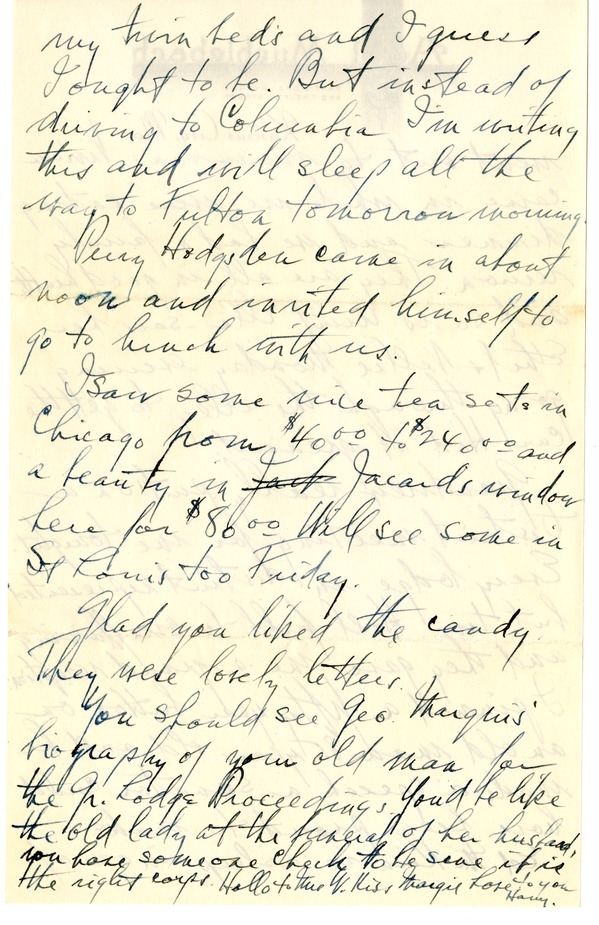 my twin beds and I guess
I ought to be. But instead of
driving to Columbia I'm writing
this and will sleep all the
way to Fulton tomorrow morning.
Perry Hodgsden came in about
noon and invited himself to
go to lunch with us.
I saw some nice tea sets in
Chicago from $40.00 to $240.00 and
a beauty in Jack Jacards window
here for $80.00 Will see some in
St Louis too Friday.
Glad you liked the candy.
They were lovely letters.
You should see Geo. Marquis'
biography of your old man for
the Gr. Lodge Proceedings. You'd be like
the old lady at the funeral of her husband,
you have someone check to be sure it is
the right corps. Hello to the W. Kiss Margie Love to you
Harry.